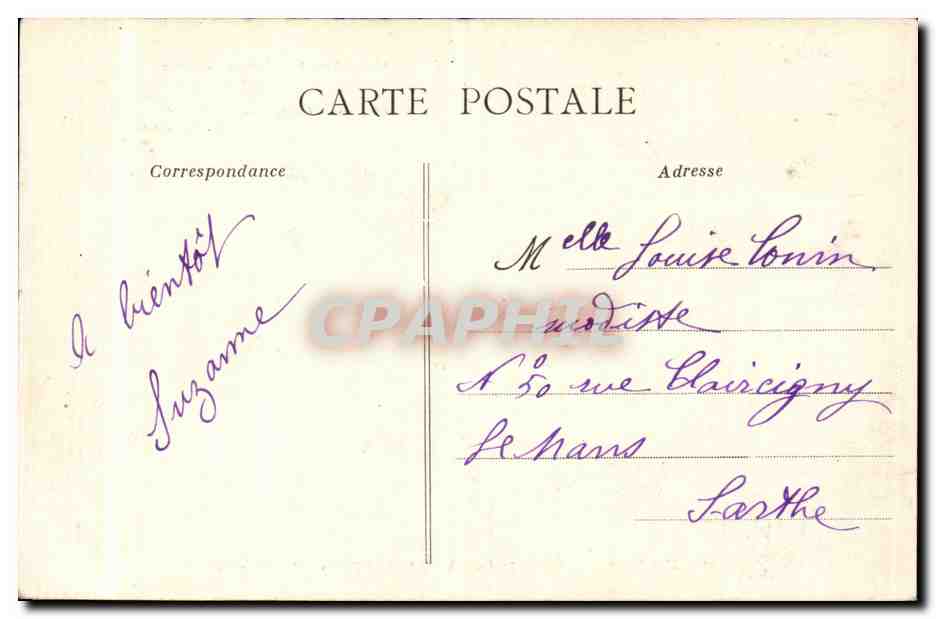 CARTE POSTALE
Correspondance
Adresse
A bientôt
Suzanne
Melle Louise
modiste
N° 50 rue Claircigny
Le Mans
Sarthe
CPAPHIL